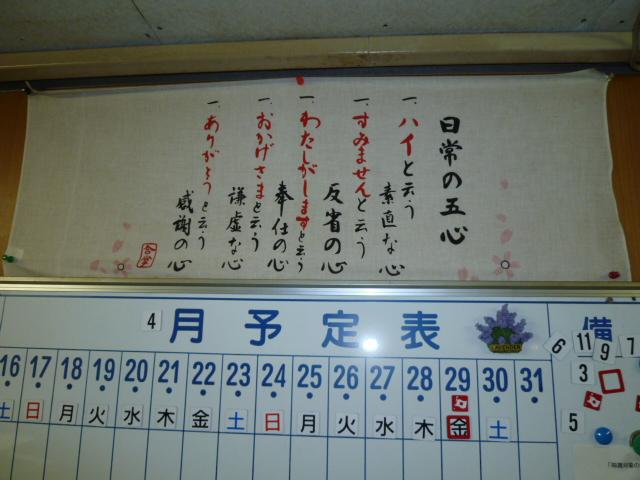 日常の五心
一、ハイと云う
素直な心
一、すみませんと云う
反省の心
一、わたしがしますと云う
奉仕の心
一、おかげさまと云う
謙虚な心
一、ありがとうと云う
感謝の心
4月予定表
備
LAVENDER
16 17 18 19 20 21 22 23 24 25 26 27 28 29 30 31
土 日 月 火 水 木 金 土 日 月 火 水 木 金 土
6 11 9 7
3
5